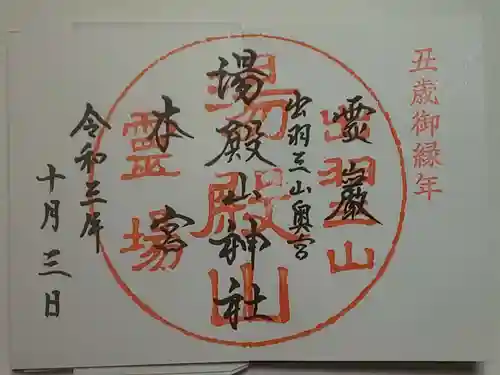 丑歳御縁年
霊巖
出羽三山奥宮
湯殿山神社
本宮
令和三年
十月三日
出羽三山
湯殿山
霊場